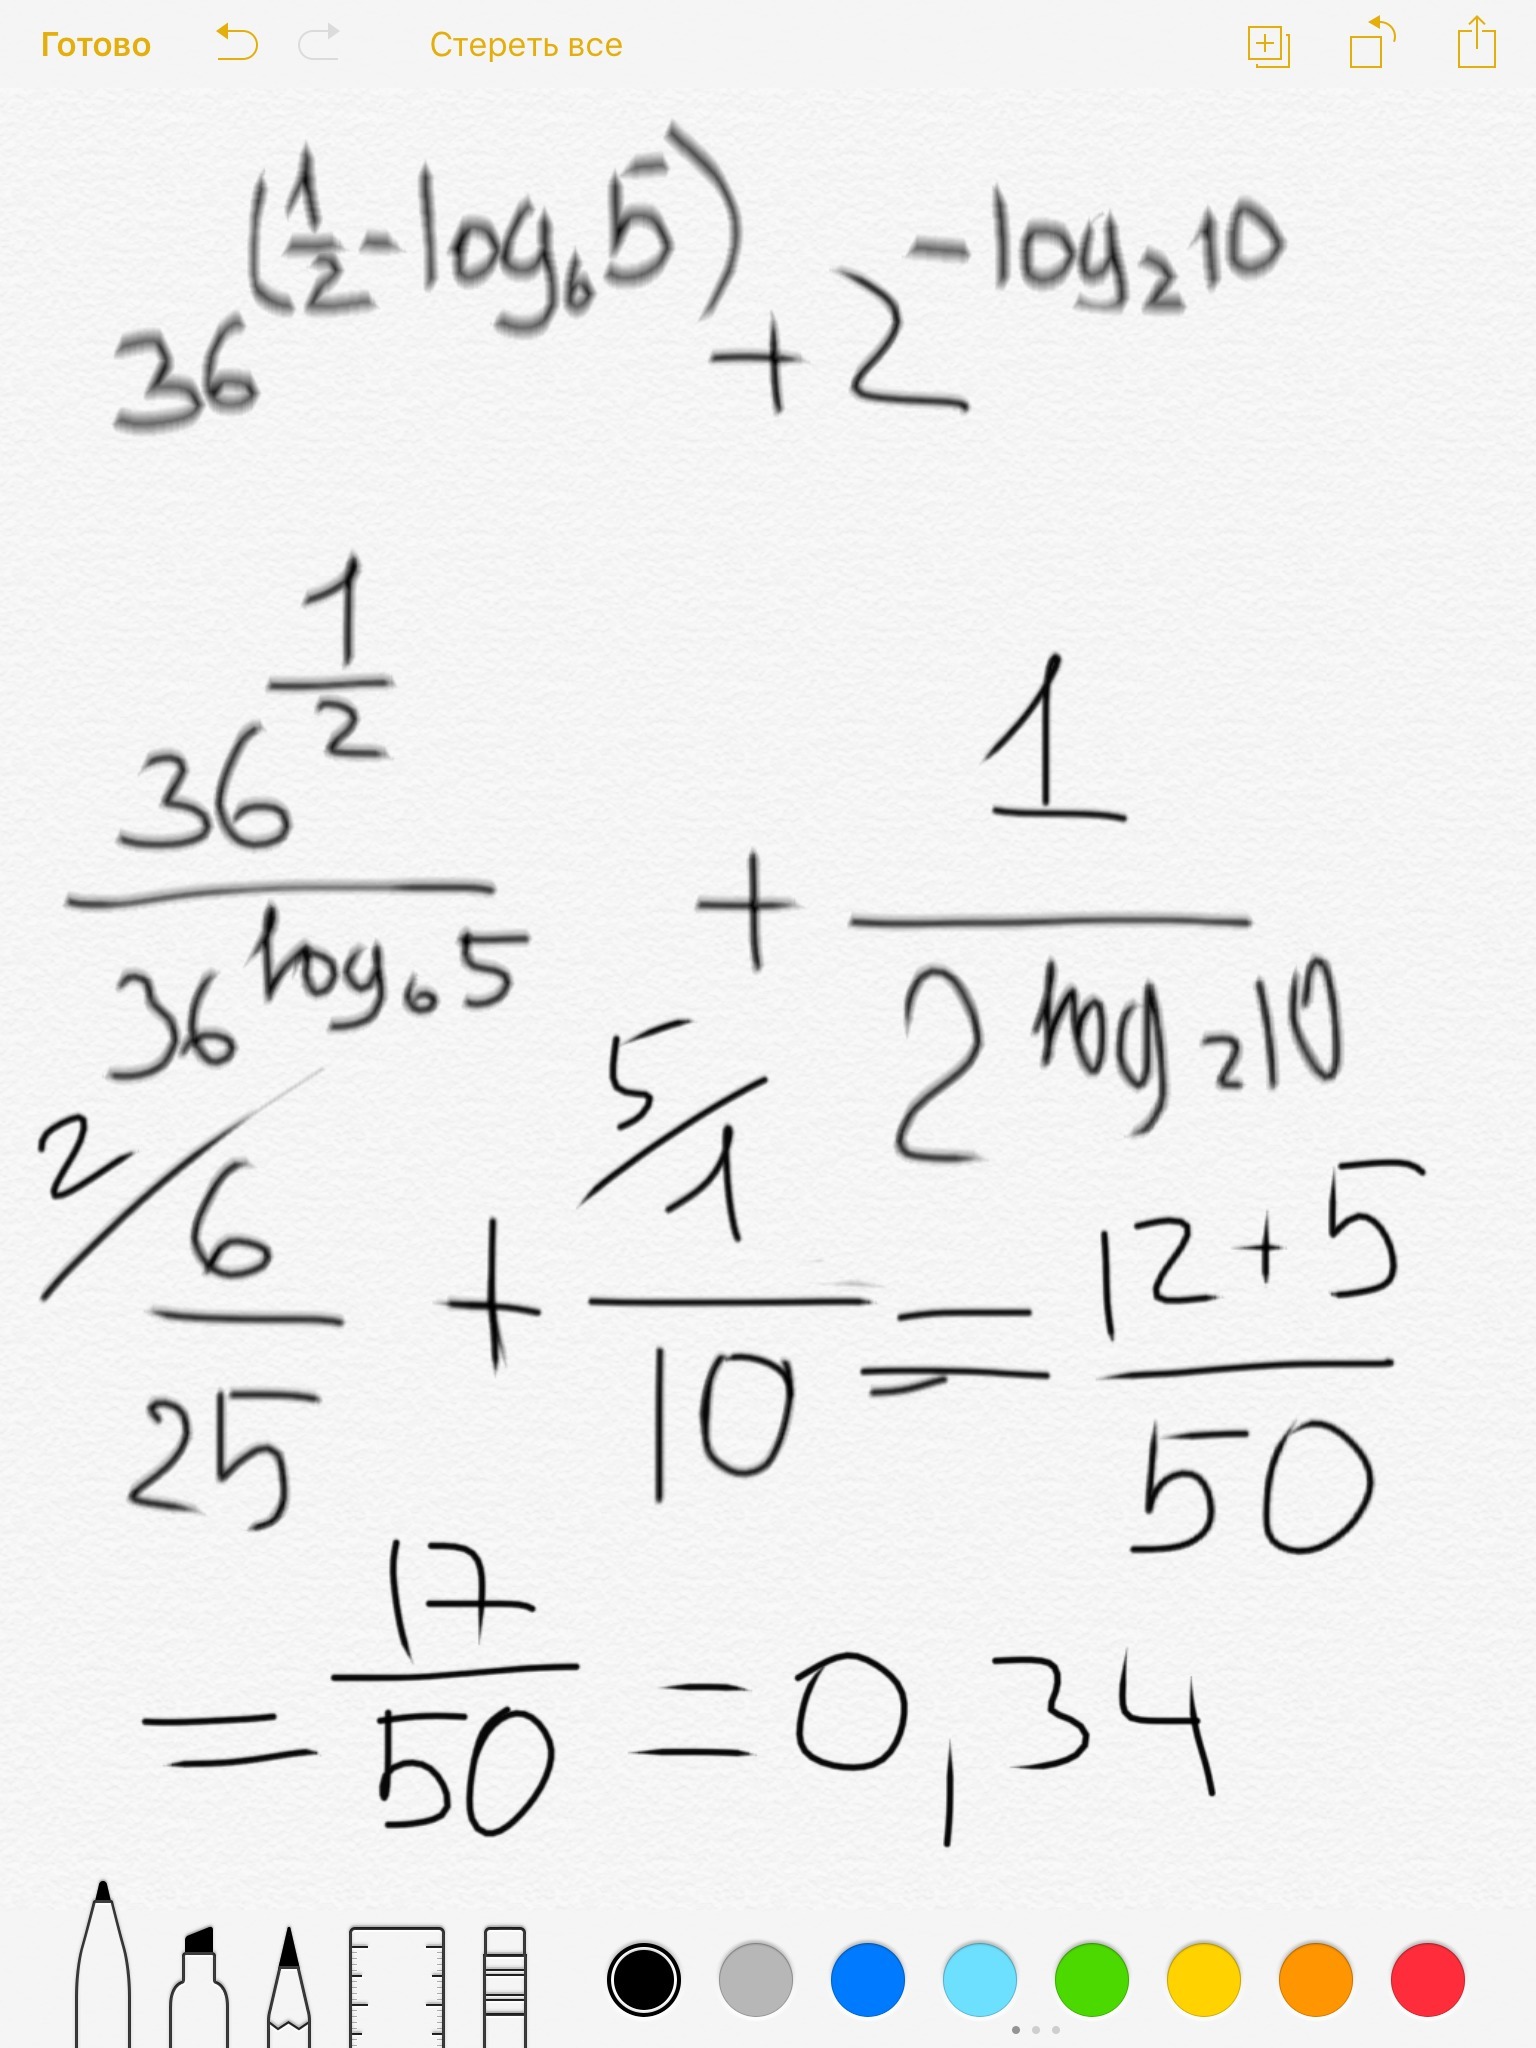 Готово Стереть все
36^(1/2 - log₆5) + 2^(-log₂10)
36^(1/2) / 36^(log₆5) + 1 / 2^(log₂10)
2/ 6/25 + 5/ 1/10 = (12+5)/50
= 17/50 = 0,34